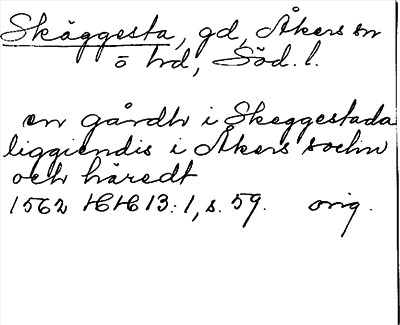 Skäggesta, gd, Åkers sn
ö hd, Söd. l.
en gårdh i Skeggestada
liggiendis i Åkers sochn
och häredt
1562 HH 13:1, s. 59. orig.